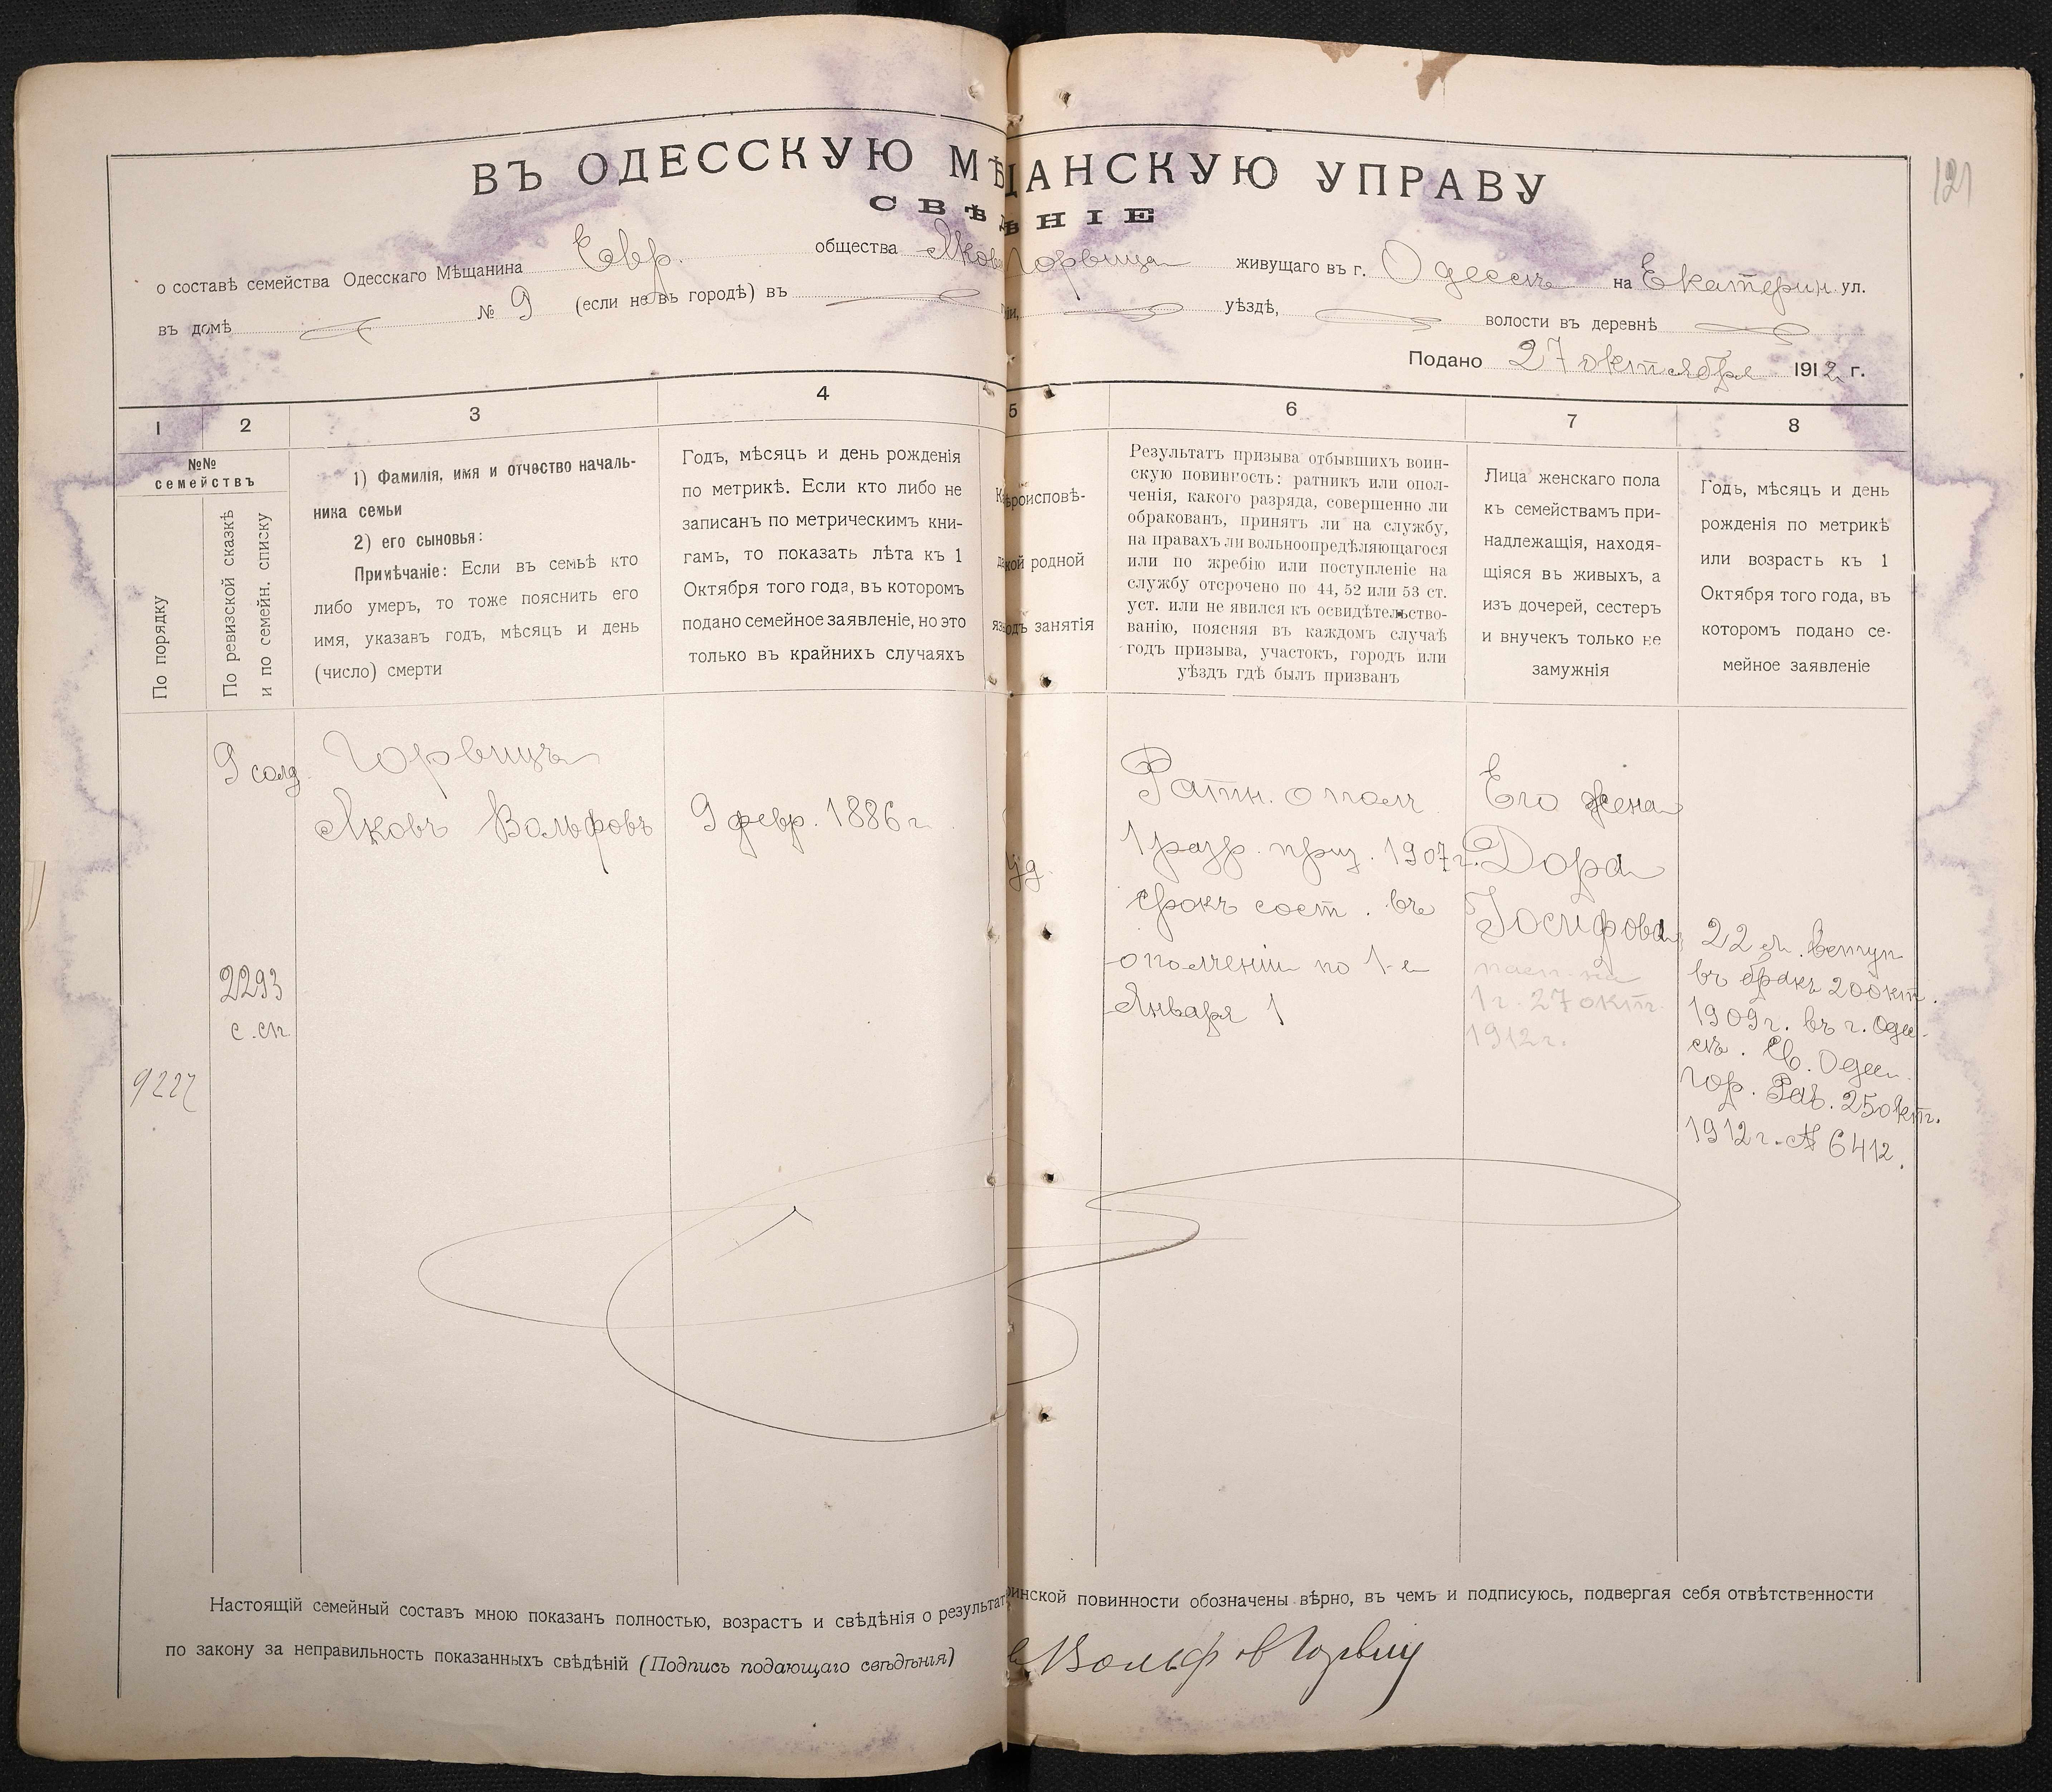 121
ВЪ ОДЕССКУЮ МѢЩАНСКУЮ УПРАВУ
СВѢДѢНІЕ
о составѣ семейства Одесскаго Мѣщанина Евр. общества Якова Горвица живущаго въ г. Одессѣ на Екатерин. ул.
въ домѣ № 9 (если не въ городѣ) въ ніи, уѣздѣ, волости въ деревнѣ
Подано 27 октября 1912 г.
1 2 3 4 5 6 7 8
№№
семействъ
По порядку
По ревизской сказкѣ
и по семейн. списку
1) Фамилія, имя и отчество началь-
ника семьи
2) его сыновья:
Примѣчаніе: Если въ семьѣ кто
либо умеръ, то тоже пояснить его
имя, указавъ годъ, мѣсяцъ и день
(число) смерти
Годъ, мѣсяцъ и день рожденія
по метрикѣ. Если кто либо не
записанъ по метрическимъ кни-
гамъ, то показать лѣта къ 1
Октября того года, въ которомъ
подано семейное заявленіе, но это
только въ крайнихъ случаяхъ
роисповѣ-
кой родной
занятія
Результатъ призыва отбывшихъ воин-
скую повинность: ратникъ или опол-
ченія, какого разряда, совершенно ли
обракованъ, принятъ ли на службу,
на правахъ ли вольноопредѣляющагося
или по жребію или поступленіе на
службу отсрочено по 44, 52 или 53 ст.
уст. или не явился къ освидѣтельство-
ванію, поясняя въ каждомъ случаѣ
годъ призыва, участокъ, городъ или
уѣздъ гдѣ былъ призванъ
Лица женскаго пола
къ семействамъ при-
надлежащія, находя-
щіяся въ живыхъ, а
изъ дочерей, сестеръ
и внучекъ только не
замужнія
Годъ, мѣсяцъ и день
рожденія по метрикѣ
или возрастъ къ 1
Октября того года, въ
которомъ подано се-
мейное заявленіе
9 солд.
2293
с. сп.
9227
Горвицъ
Яковъ Вольфовъ
9 февр. 1886 г.
Іуд.
Ратн. ополч
1 разр. приз. 1907 г.
срокъ сост. въ
ополченіи по 1-е
Января 1
Его жена
Дора
Іосифова
пасп. на
1 г. 27 окт.
1912 г.
22 л. вступ
въ бракъ 20 окт.
1909 г. въ г. Одес-
сѣ. Св. Одес.
Гор. Рав. 25 окт.
1912 г. № 6412.
Настоящій семейный составъ мною показанъ полностью, возрастъ и свѣдѣнія о результат инской повинности обозначены вѣрно, въ чемъ и подписуюсь, подвергая себя отвѣтственности
по закону за неправильность показанныхъ свѣдѣній (Подпись подающаго свѣдѣнія) Вольфов Горвиц